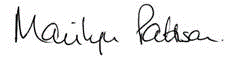 Marilyn Pattison.